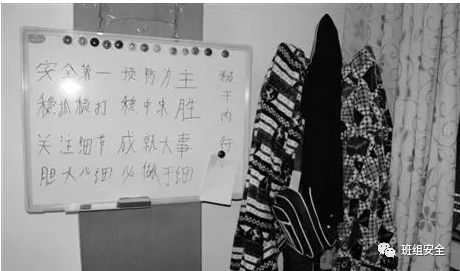 安全第一 预防为主
稳抓稳打 稳中求胜
关注细节 成就大事
胆大心细 必做于细
干内行
班组安全